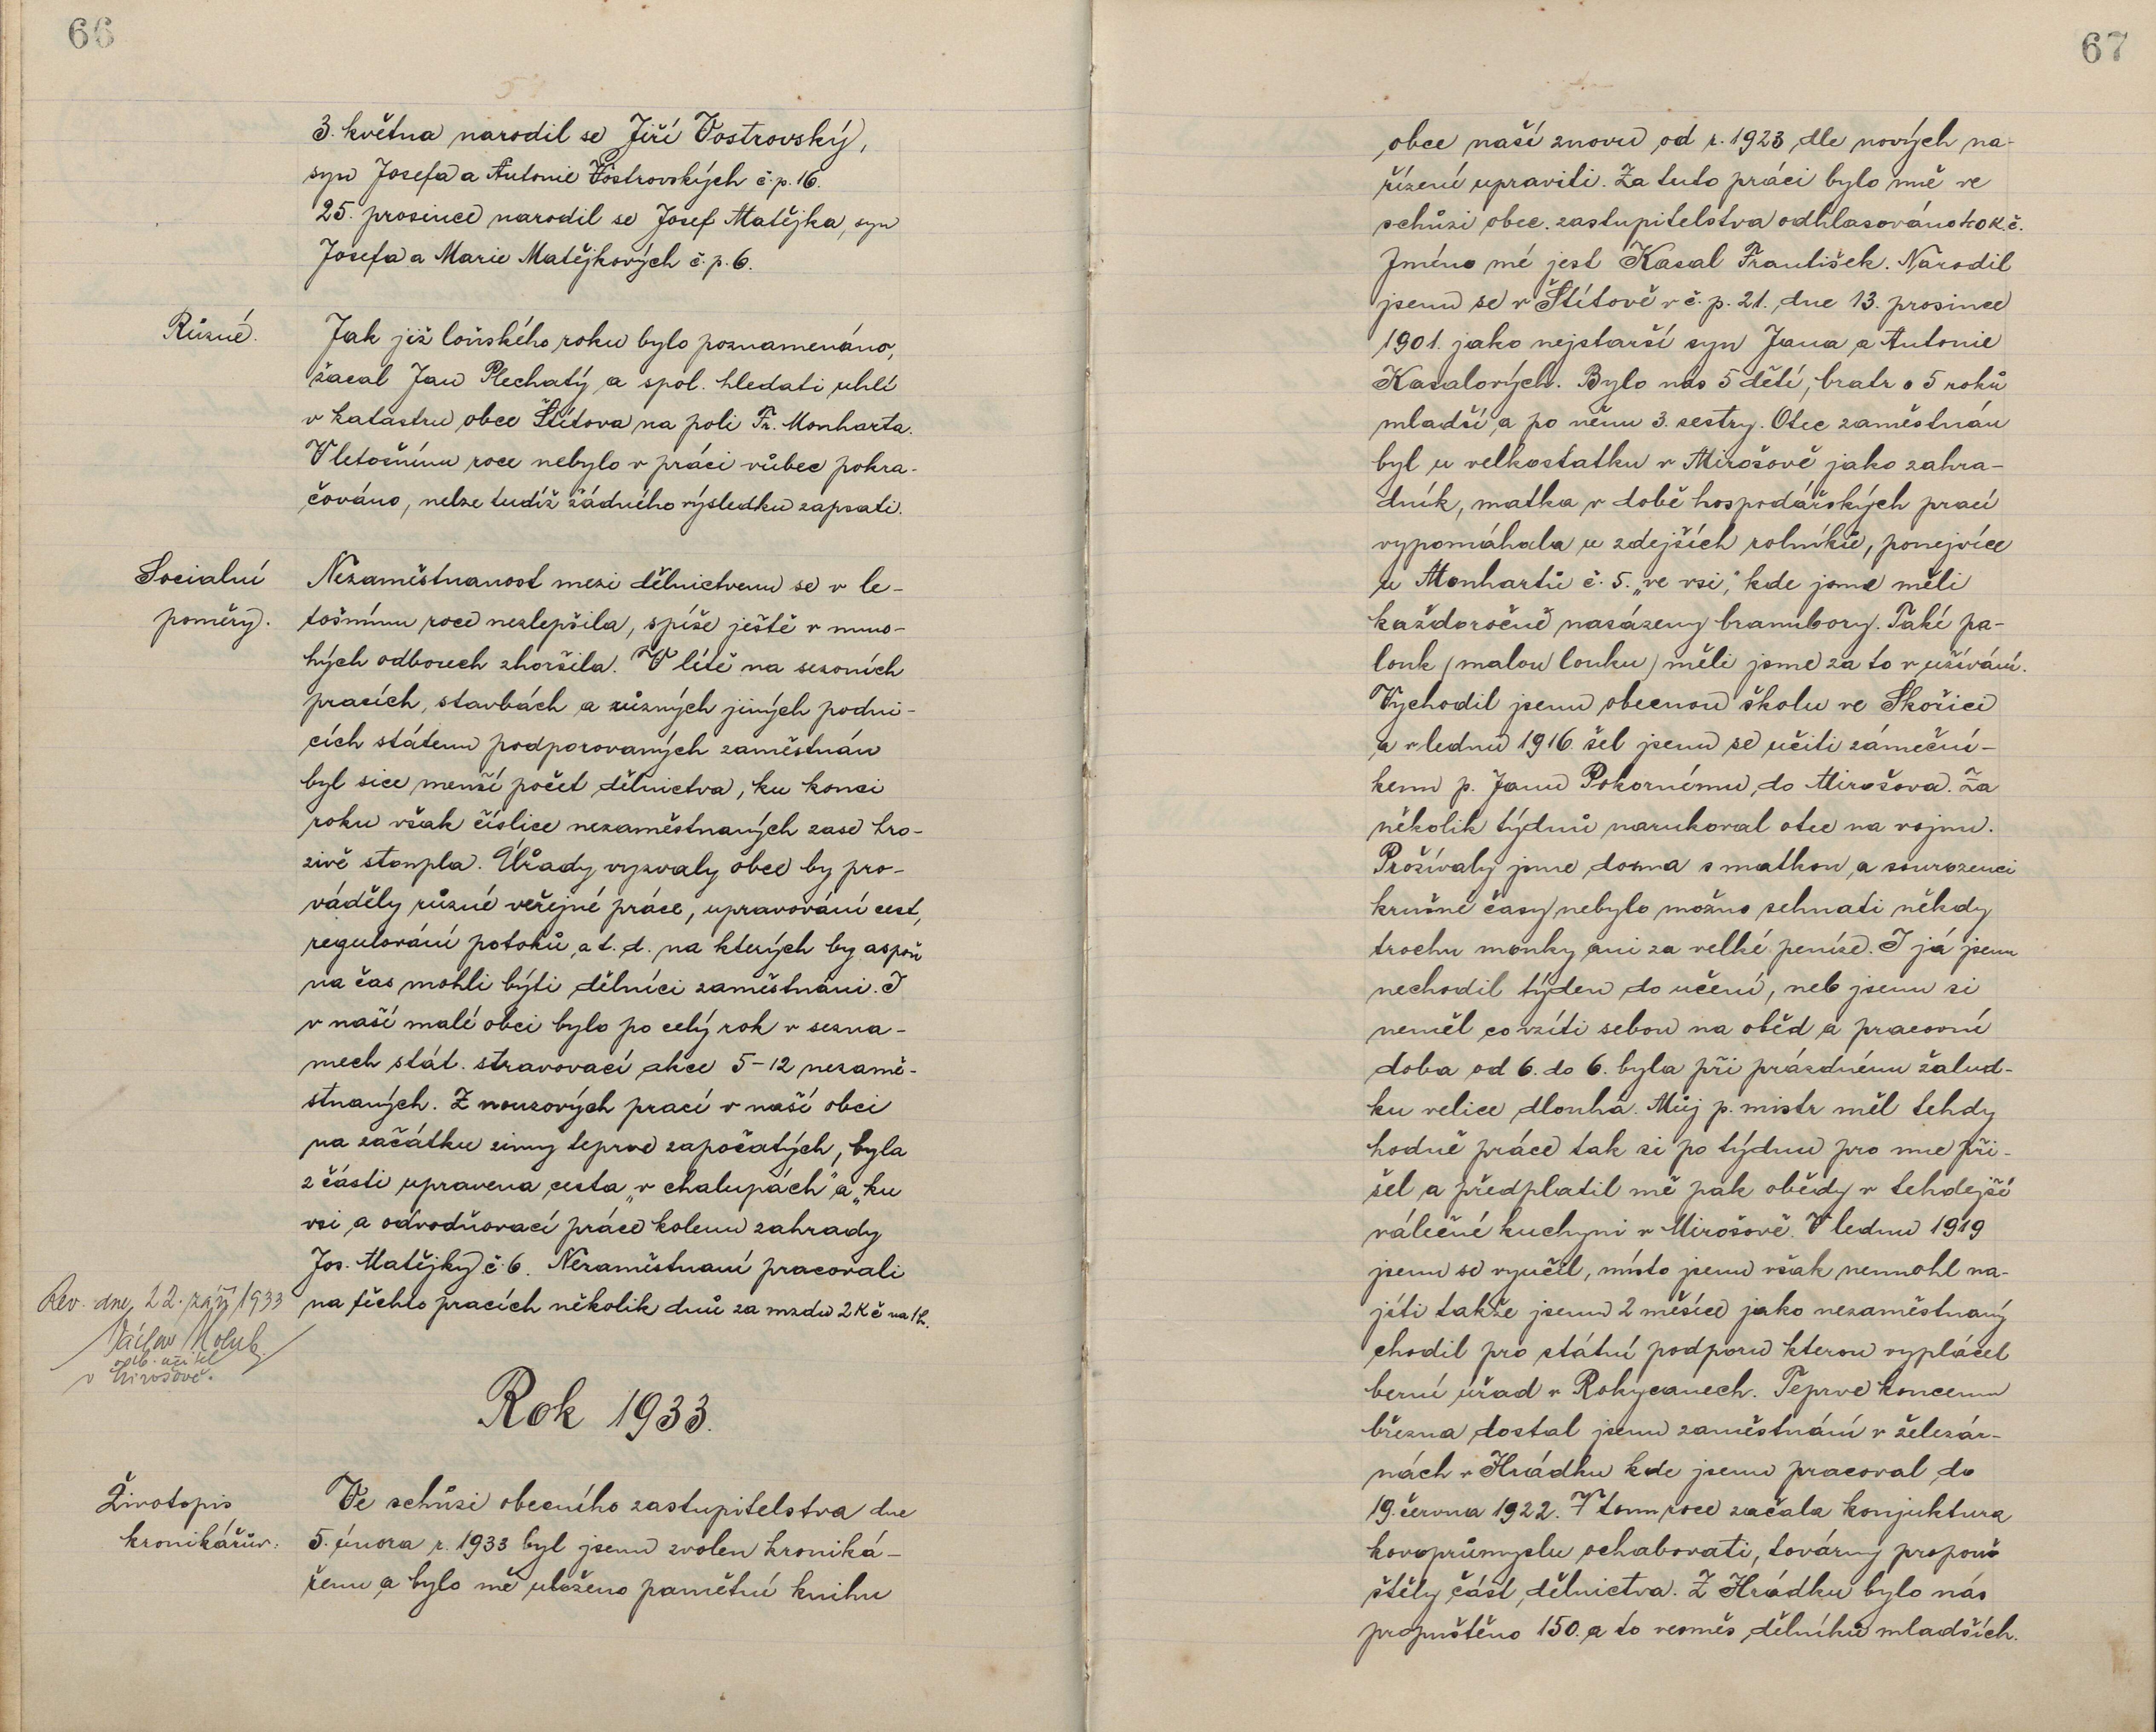 66
3. května narodil se Jiří Vostrovský,
syn Josefa a Antonie Vostrovských č.p. 16.
25. prosince narodil se Josef Matějka, syn
Josefa a Marie Matějkových č.p. 6.
Různé.
Jak již loňského roku bylo poznamenáno,
začal Jan Plechatý a spol. hledati uhlí
v katastru obce Štítova na poli Fr. Monharta.
V letošnímu roce nebylo v práci vůbec pokra-
čováno, nelze tudíž žádného výsledku zapsati.
Socialní
poměry.
Nezaměstnanost mezi dělnictvem se v le-
tošnímu roce nezlepšila, spíše ještě v mno-
hých odborech zhoršila. V létě na sezoních
pracích, stavbách a různých jiných podni-
cích státem podporovaných zaměstnán
byl sice menší počet dělnictva, ku konci
roku však číslice nezaměstnaných zase hro-
zivě stoupla. Úřady vyzvaly obce by pro-
váděly různé veřejné práce, upravování cest,
regulování potoků a t. d. na kterých by aspoň
na čas mohli býti dělníci zaměstnáni. I
v naší malé obci bylo po celý rok v sezna-
mech stát. stravovací akce 5-12 nezamě-
stnaných. Z nouzových prací v naší obci
na začátku zimy teprve započatých, byla
z části upravena cesta „v chalupách" a „ku
vsi a odvodňovací práce kolem zahrady
Jos. Matějky č. 6. Nezaměstnaní pracovali
na těchto pracích několik dnů za mzdu 2 Kč na 1 h.
Rev. dne 22. září 1933
Václav Holub
odb. učitel
v Mirošově.
Rok 1933.
Životopis
kronikářův.
Ve schůzi obecního zastupitelstva dne
5. února r. 1933 byl jsem zvolen kroniká-
řem a bylo mě uloženo pamětní knihu
67
obce naší znovu od r. 1923 dle nových na-
řízení upraviti. Za tuto práci bylo mně ve
schůzi obec. zastupitelstva odhlasováno K.č.
Jméno mé jest Kasal František. Narodil
jsem se v Štítově v č. p. 21. dne 13. prosince
1901. jako nejstarší syn Jana a Antonie
Kasalových. Bylo nás 5 dětí, bratr o 5 roků
mladší a po něm 3. sestry. Otec zaměstnán
byl u velkostatku v Mirošově jako zahra-
dník, matka v době hospodářských prací
vypomáhala u zdejších rolníků, ponejvíce
u Monhartů č. 5. „ve vsi," kde jsme měli
každoročně nasázeny brambory. Také pa-
louk (malou louku) měli jsme za to v užívání.
Vychodil jsem obecnou školu ve Skořici
a v lednu 1916 šel jsem se učiti zámeční-
kem p. Janu Pokornému do Mirošova. Za
několik týdnů narukoval otec na vojnu.
Prožívaly jsme doma s matkou a sourozenci
krušné časy nebylo možno sehnati někdy
trochu mouky ani za velké peníze. I já jsem
nechodil týden do učení, neb jsem si
neměl co vzíti sebou na oběd a pracovní
doba od 6. do 6. byla při prázdném žalud-
ku velice dlouhá. Můj p. mistr měl tehdy
hodně práce tak si po týdnu pro mne při-
šel a předplatil mě pak obědy v tehdejší
válečné kuchyni v Mirošově. V lednu 1919
jsem se vyučil, místo jsem však nemohl na-
jíti takže jsem 2 měsíce jako nezaměstnaný
chodil pro státní podporu kterou vyplácel
berní úřad v Rokycanech. Teprve koncem
března dostal jsem zaměstnání v železár-
nách v Hrádku kde jsem pracoval do
19. června 1922. V tom roce začala konjuktura
kovoprůmyslu ochabovati, továrny propou-
štěly část dělnictva. Z Hrádku bylo nás
propuštěno 150. a to vesměs dělníků mladších.